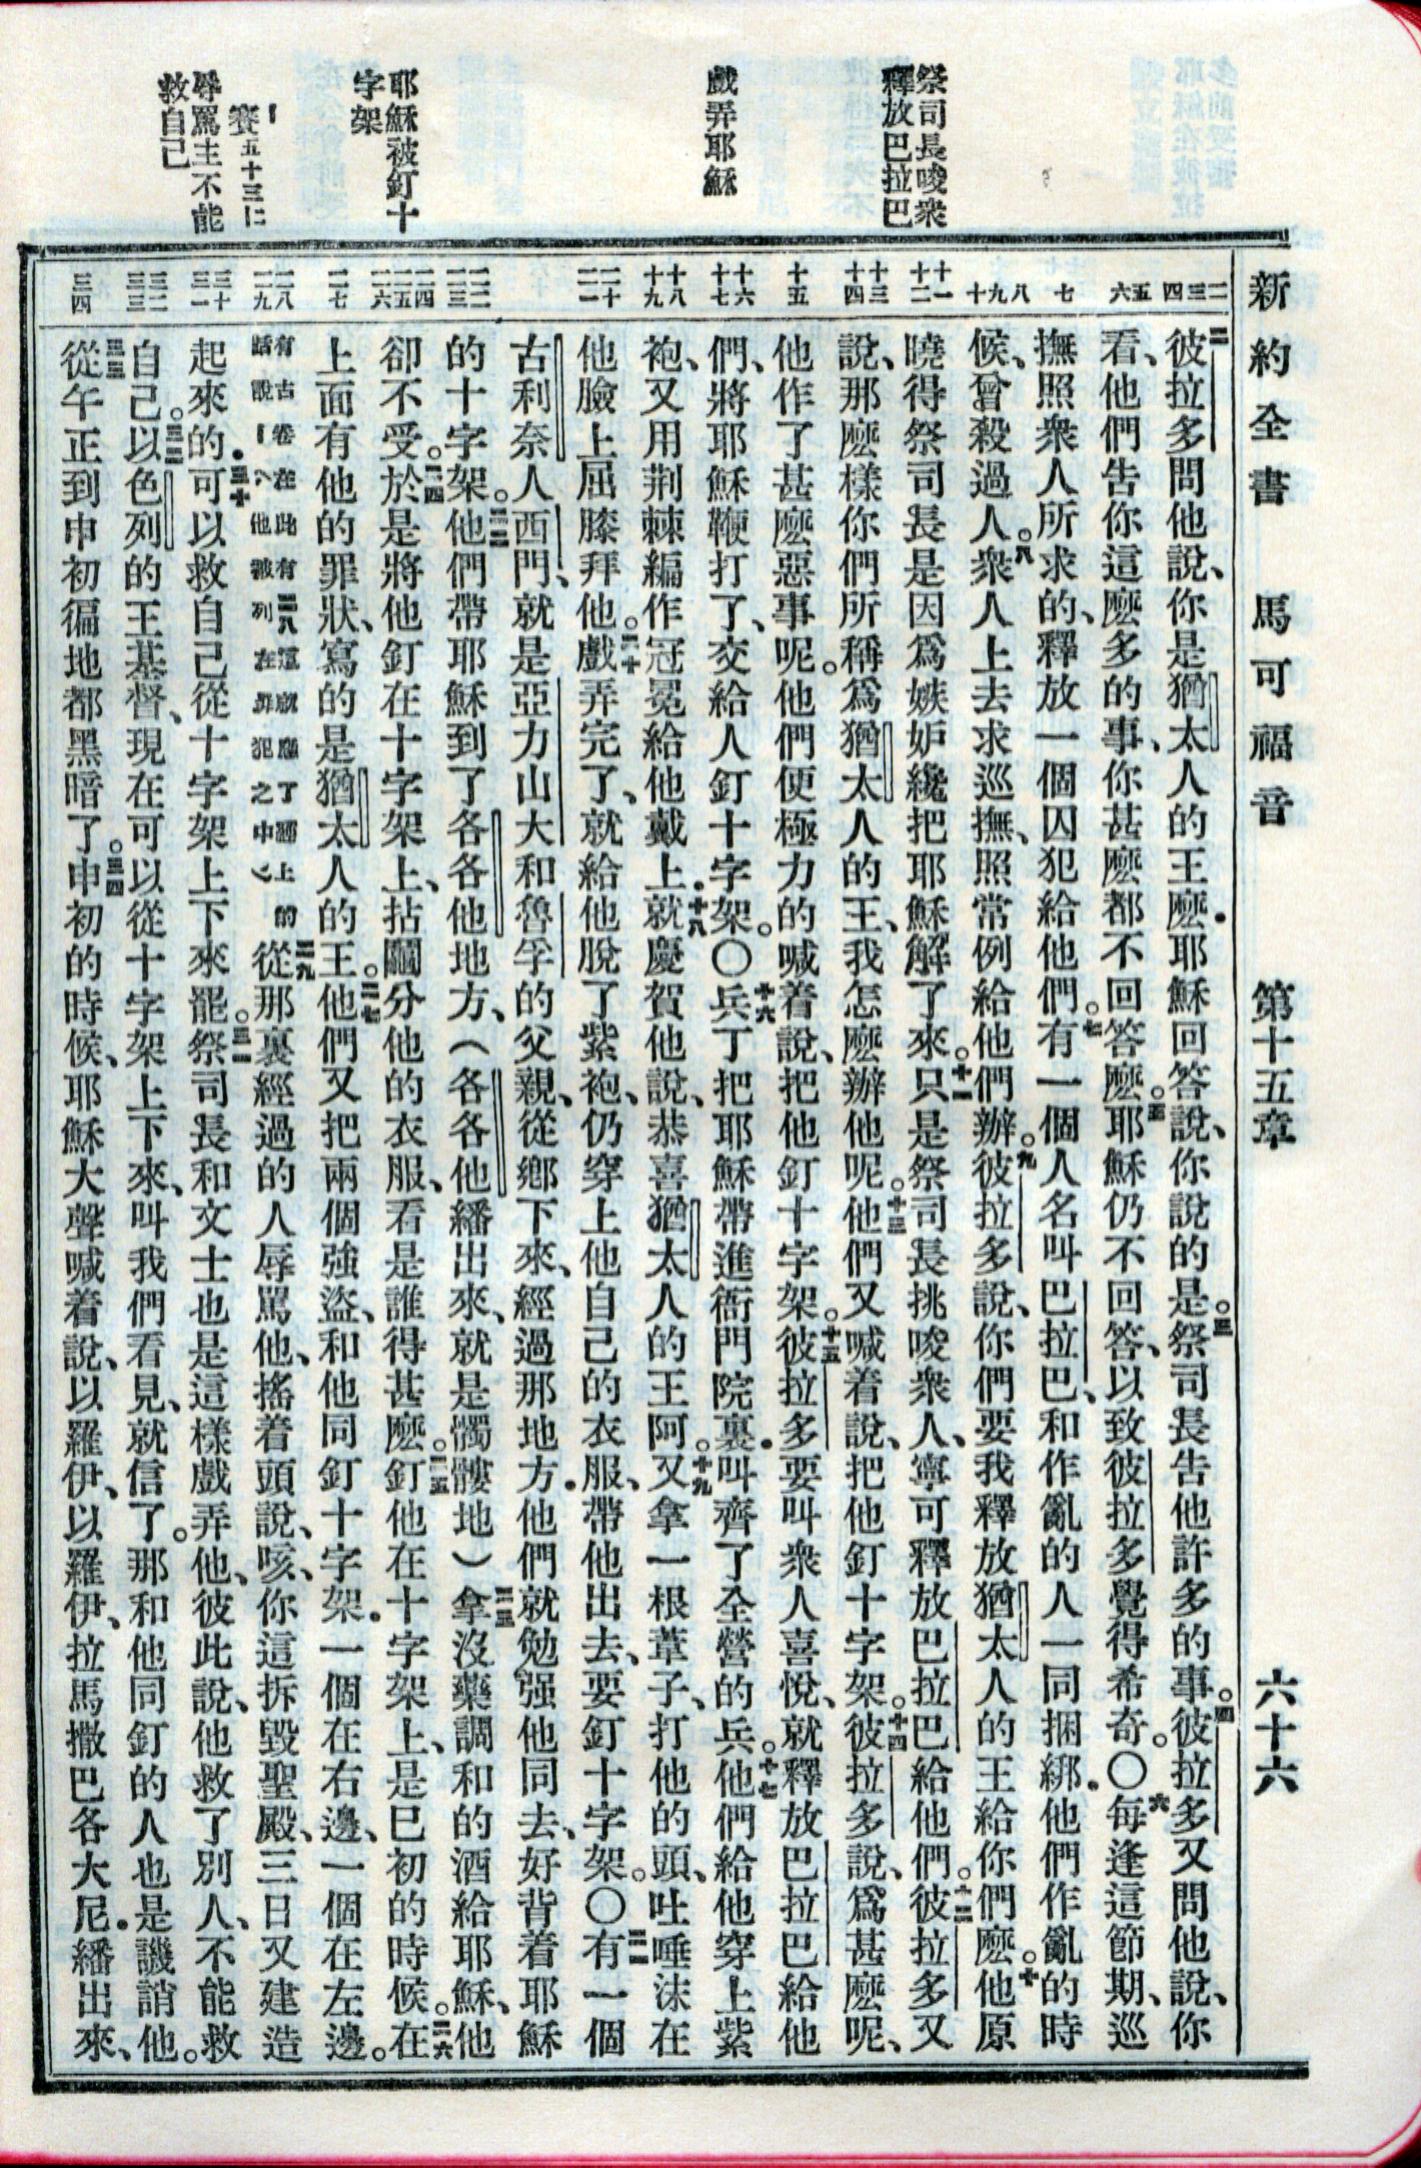 新約全書　馬可福音　第十五章　六十六
祭司長唆衆
釋放巴拉巴
戲弄耶穌
耶穌被釘十
字架
一賽五十三 
辱罵主不能
救自己
二三四
五六
七
八九十
十一十二
十三十四
十五
十六十七
十八十九
二十二一
二二二三
二四二五二六
二七
二八二九
三十三一
三二三三
三四
二彼拉多問他說、你是猶太人的王麽．耶穌回答說、你說的是。三祭司長告他許多的事。四彼拉多又問他說、你
看、他們告你這麽多的事、你甚麽都不回答麽。五耶穌仍不回答、以致彼拉多覺得希奇。〇六每逢這節期、巡
撫照衆人所求的、釋放一個囚犯給他們。七有一個人名叫巴拉巴、和作亂的人一同捆綁．他們作亂的時
候、曾殺過人。八衆人上去求巡撫、照常例給他們辦。九彼拉多說、你們要我釋放猶太人的王給你們麽。十他原
曉得祭司長是因爲嫉妒纔把耶穌解了來。十一只是祭司長挑唆衆人、寧可釋放巴拉巴給他們。十二彼拉多又
說、那麽樣你們所稱爲猶太人的王、我怎麽辦他呢。十三他們又喊着說、把他釘十字架。十四彼拉多說、爲甚麽呢、
他作了甚麽惡事呢。他們便極力的喊着說、把他釘十字架。十五彼拉多要叫衆人喜悅、就釋放巴拉巴給他
們、將耶穌鞭打了、交給人釘十字架。〇十六兵丁把耶穌帶進衙門院裏．叫齊了全營的兵。十七他們給他穿上紫
袍、又用荆棘編作冠冕給他戴上．十八就慶賀他說、恭喜猶太人的王阿。十九又拿一根葦子、打他的頭、吐唾沫在
他臉上屈膝拜他。二十戲弄完了、就給他脫了紫袍、仍穿上他自己的衣服、帶他出去、要釘十字架。〇二一有一個
古利奈人西門、就是亞力山大和魯孚的父親、從鄉下來、經過那地方．他們就勉强他同去、好背着耶穌
的十字架。二二他們帶耶穌到了各各他地方、（各各他繙出來、就是髑髏地）二三拿沒藥調和的酒給耶穌、他
卻不受。二四於是將他釘在十字架上、拈鬮分他的衣服、看是誰得甚麽。二五釘他在十字架上、是巳初的時候。二六在
上面有他的罪狀、寫的是猶太人的王。二七他們又把兩個強盜、和他同釘十字架．一個在右邊、一個在左邊。
有古卷在此有二八這就應了經上的
話說一八他被列在罪犯之中）
二九從那裏經過的人辱罵他、搖着頭說、咳、你這拆毀聖殿、三日又建造
起來的．三十可以救自己從十字架上下來罷。三一祭司長和文士也是這樣戲弄他、彼此說、他救了別人、不能救
自己。三二以色列的王基督、現在可以從十字架上下來、叫我們看見、就信了。那和他同釘的人也是譏誚他。
三三從午正到申初徧地都黑暗了。三四申初的時候、耶穌大聲喊着說、以羅伊、以羅伊、拉馬撒巴各大尼．繙出來、